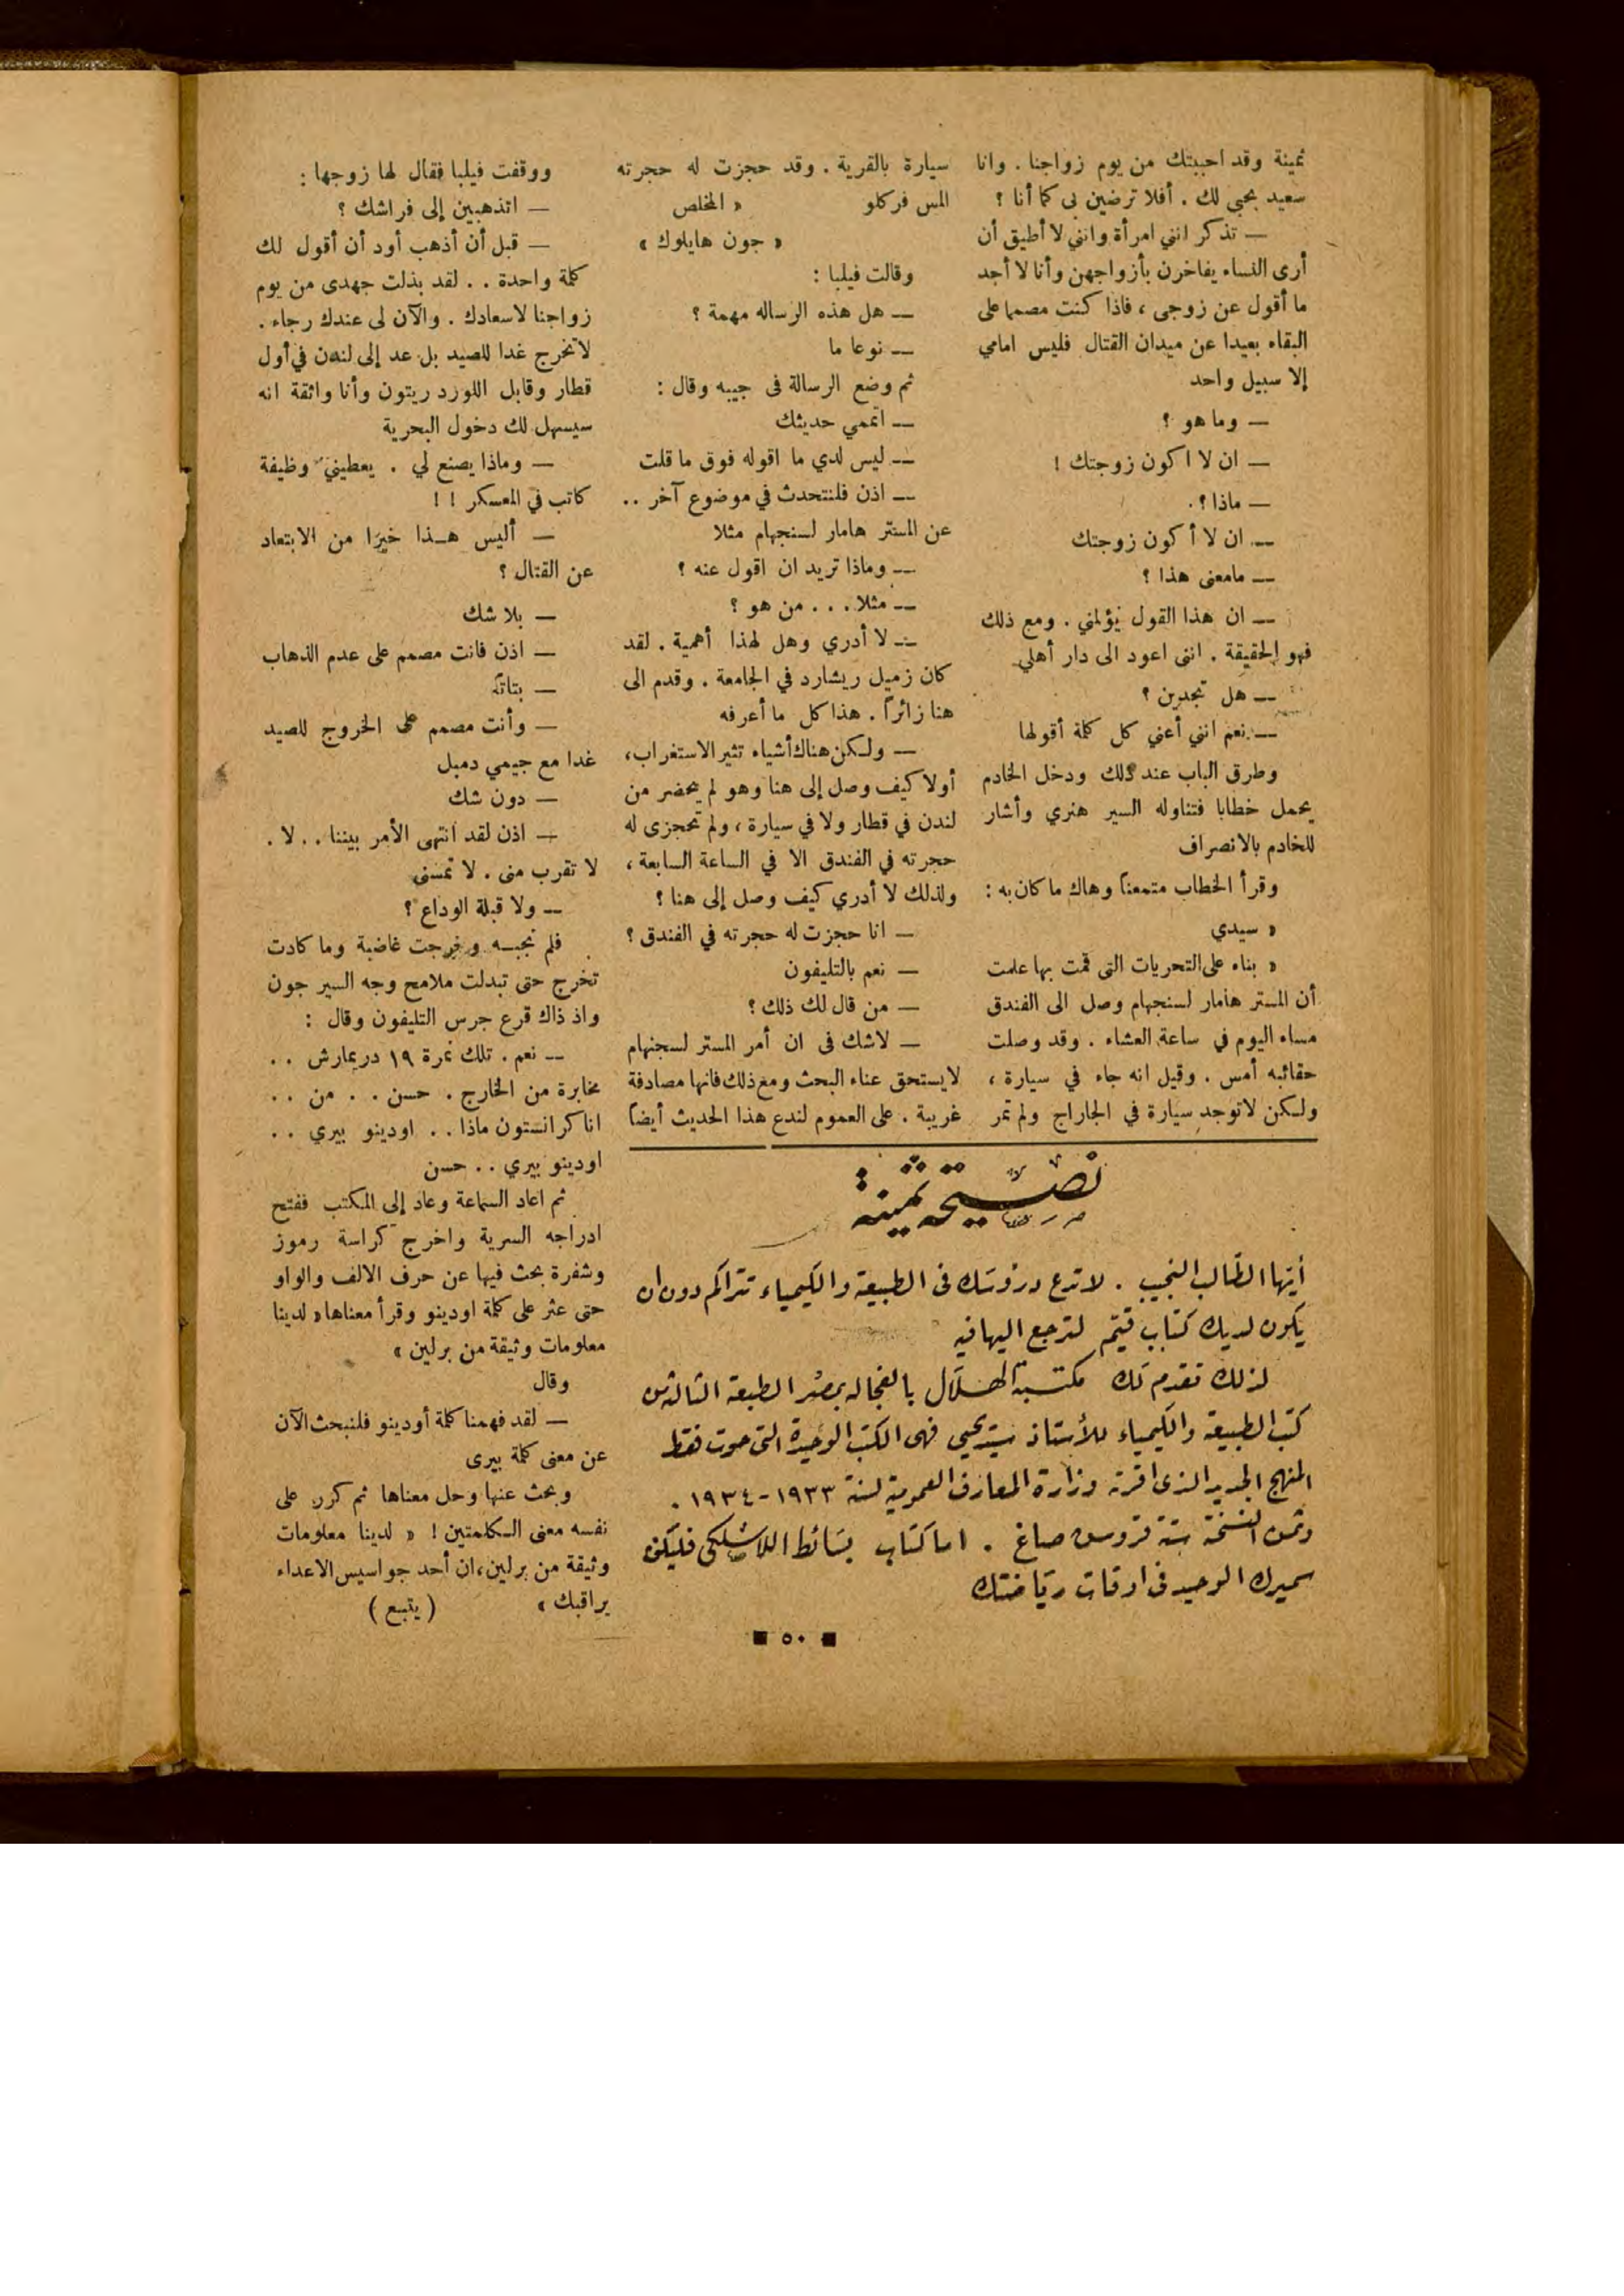 ثمينة وقد احببتك من يوم زواجنا . وانا
سعيد بحبي لك . أفلا ترضين بى كما أنا ؟
— تذكر انني امرأة وانني لا أطيق أن
أرى النساء يفاخرن بأزواجهن وأنا لا أجد
ما أقول عن زوجى ، فاذا كنت مصمما على
البقاء بعيدا عن ميدان القتال فليس امامي
إلا سبيل واحد
— وما هو ؟
— ان لا اكون زوجتك !
— ماذا ؟ .
— ان لا أكون زوجتك
— مامعنى هذا ؟
— ان هذا القول يؤلمني . ومع ذلك
فهو الحقيقة . اننى اعود الى دار أهلي
— هل تجدين ؟
— نعم انني أعني كل كلمة أقولها
وطرق الباب عند ذلك ودخل الخادم
يحمل خطابا فتناوله السير هنري وأشار
للخادم بالانصراف
وقرأ الخطاب متمعناً وهاك ما كان به :
« سيدي
« بناء على التحريات التى قمت بها علمت
أن المستر هامار لسنجهام وصل الى الفندق
مساء اليوم في ساعة العشاء . وقد وصلت
حقائبه أمس . وقيل انه جاء في سيارة ،
ولكن لاتوجد سيارة في الجاراج ولم تمر
سيارة بالقرية . وقد حجزت له حجرته
المس فركلو « المخلص
« جون هايلوك »
وقالت فيلبا :
— هل هذه الرساله مهمة ؟
— نوعا ما
ثم وضع الرسالة فى جيبه وقال :
— اتممي حديثك
— ليس لدي ما اقوله فوق ما قلت
— اذن فلنتحدث في موضوع آخر . .
عن المستر هامار لسنجهام مثلا
— وماذا تريد ان اقول عنه ؟
— مثلا . . . من هو ؟
— لا أدري وهل لهذا أهمية . لقد
كان زميل ريشارد في الجامعة . وقدم الى
هنا زائراً . هذا كل ما أعرفه
— ولكن هناك أشياء تثير الاستغراب ،
أولا كيف وصل إلى هنا وهو لم يحضر من
لندن في قطار ولا في سيارة ، ولم تحجزى له
حجرته في الفندق الا في الساعة السابعة ،
ولذلك لا أدري كيف وصل إلى هنا ؟
— انا حجزت له حجرته في الفندق ؟
— نعم بالتليفون
— من قال لك ذلك ؟
— لاشك فى ان أمر المستر لسجنهام
لا يستحق عناء البحث ومع ذلك فانها مصادفة
غريبة . على العموم لندع هذا الحديث أيضاً
ووقفت فيلبا فقال لها زوجها :
— اتذهبين إلى فراشك ؟
— قبل أن أذهب أود أن أقول لك
كلمة واحدة . . لقد بذلت جهدى من يوم
زواجنا لاسعادك . والآن لى عندك رجاء .
لاتخرج غدا للصيد بل عد إلى لندن في أول
قطار وقابل اللورد ريتون وأنا واثقة انه
سيسهل لك دخول البحرية
— وماذا يصنع لي . يعطيني وظيفة
كاتب في المعسكر ! !
— أليس هذا خيرا من الابتعاد
عن القتال ؟
— بلا شك
— اذن فانت مصمم على عدم الذهاب
— بتاتا
— وأنت مصمم على الخروج للصيد
غدا مع جيمي دمبل
— دون شك
— اذن لقد انتهى الأمر بيننا . . لا .
لا تقرب منى . لا تمسنى
— ولا قبلة الوداع ؟
فلم تجبه وخرجت غاضبة وما كادت
تخرج حتى تبدلت ملامح وجه السير جون
واذ ذاك قرع جرس التليفون وقال :
— نعم . تلك نمرة ١٩ دريمارش . .
مخابرة من الخارج . حسن . . من . .
انا كرانستون ماذا . . اودينو بيري . .
اودينو بيري . . حسن
ثم اعاد السماعة وعاد إلى المكتب ففتح
ادراجه السرية واخرج كراسة رموز
وشفرة بحث فيها عن حرف الالف والواو
حتى عثر على كلمة اودينو وقرأ معناها « لدينا
معلومات وثيقة من برلين »
وقال
— لقد فهمنا كلمة أودينو فلنبحث الآن
عن معنى كلمة بيرى
وبحث عنها وحل معناها ثم كرر على
نفسه معنى الكلمتين ! « لدينا معلومات
وثيقة من برلين ، ان أحد جواسيس الاعداء
يراقبك » ( يتبع )
نصيحة ثمينة :
أيها الطالب النجيب . لا تدع دروسك فى الطبيعة والكيمياء تتراكم دون ان
يكون لديك كتاب قيّم لترجع اليها فيه
لذلك تقدم لك مكتبة الهلال بالفجاله بمصر الطبعة الثالثة من
كتب الطبيعة والكيمياء للأستاذ سيد يحيى فهى الكتب الوحيدة التى حوت فقط
المنهج الجديد الذى اقرته وزارة المعارف العمومية لسنة ١٩٣٣ - ١٩٣٤ .
وثمن النسخة ستة قروش صاغ . اما كتاب بسائط اللاسلكى فليكن
سميرك الوحيد فى اوقات رياضتك
■ ٥٠ ■